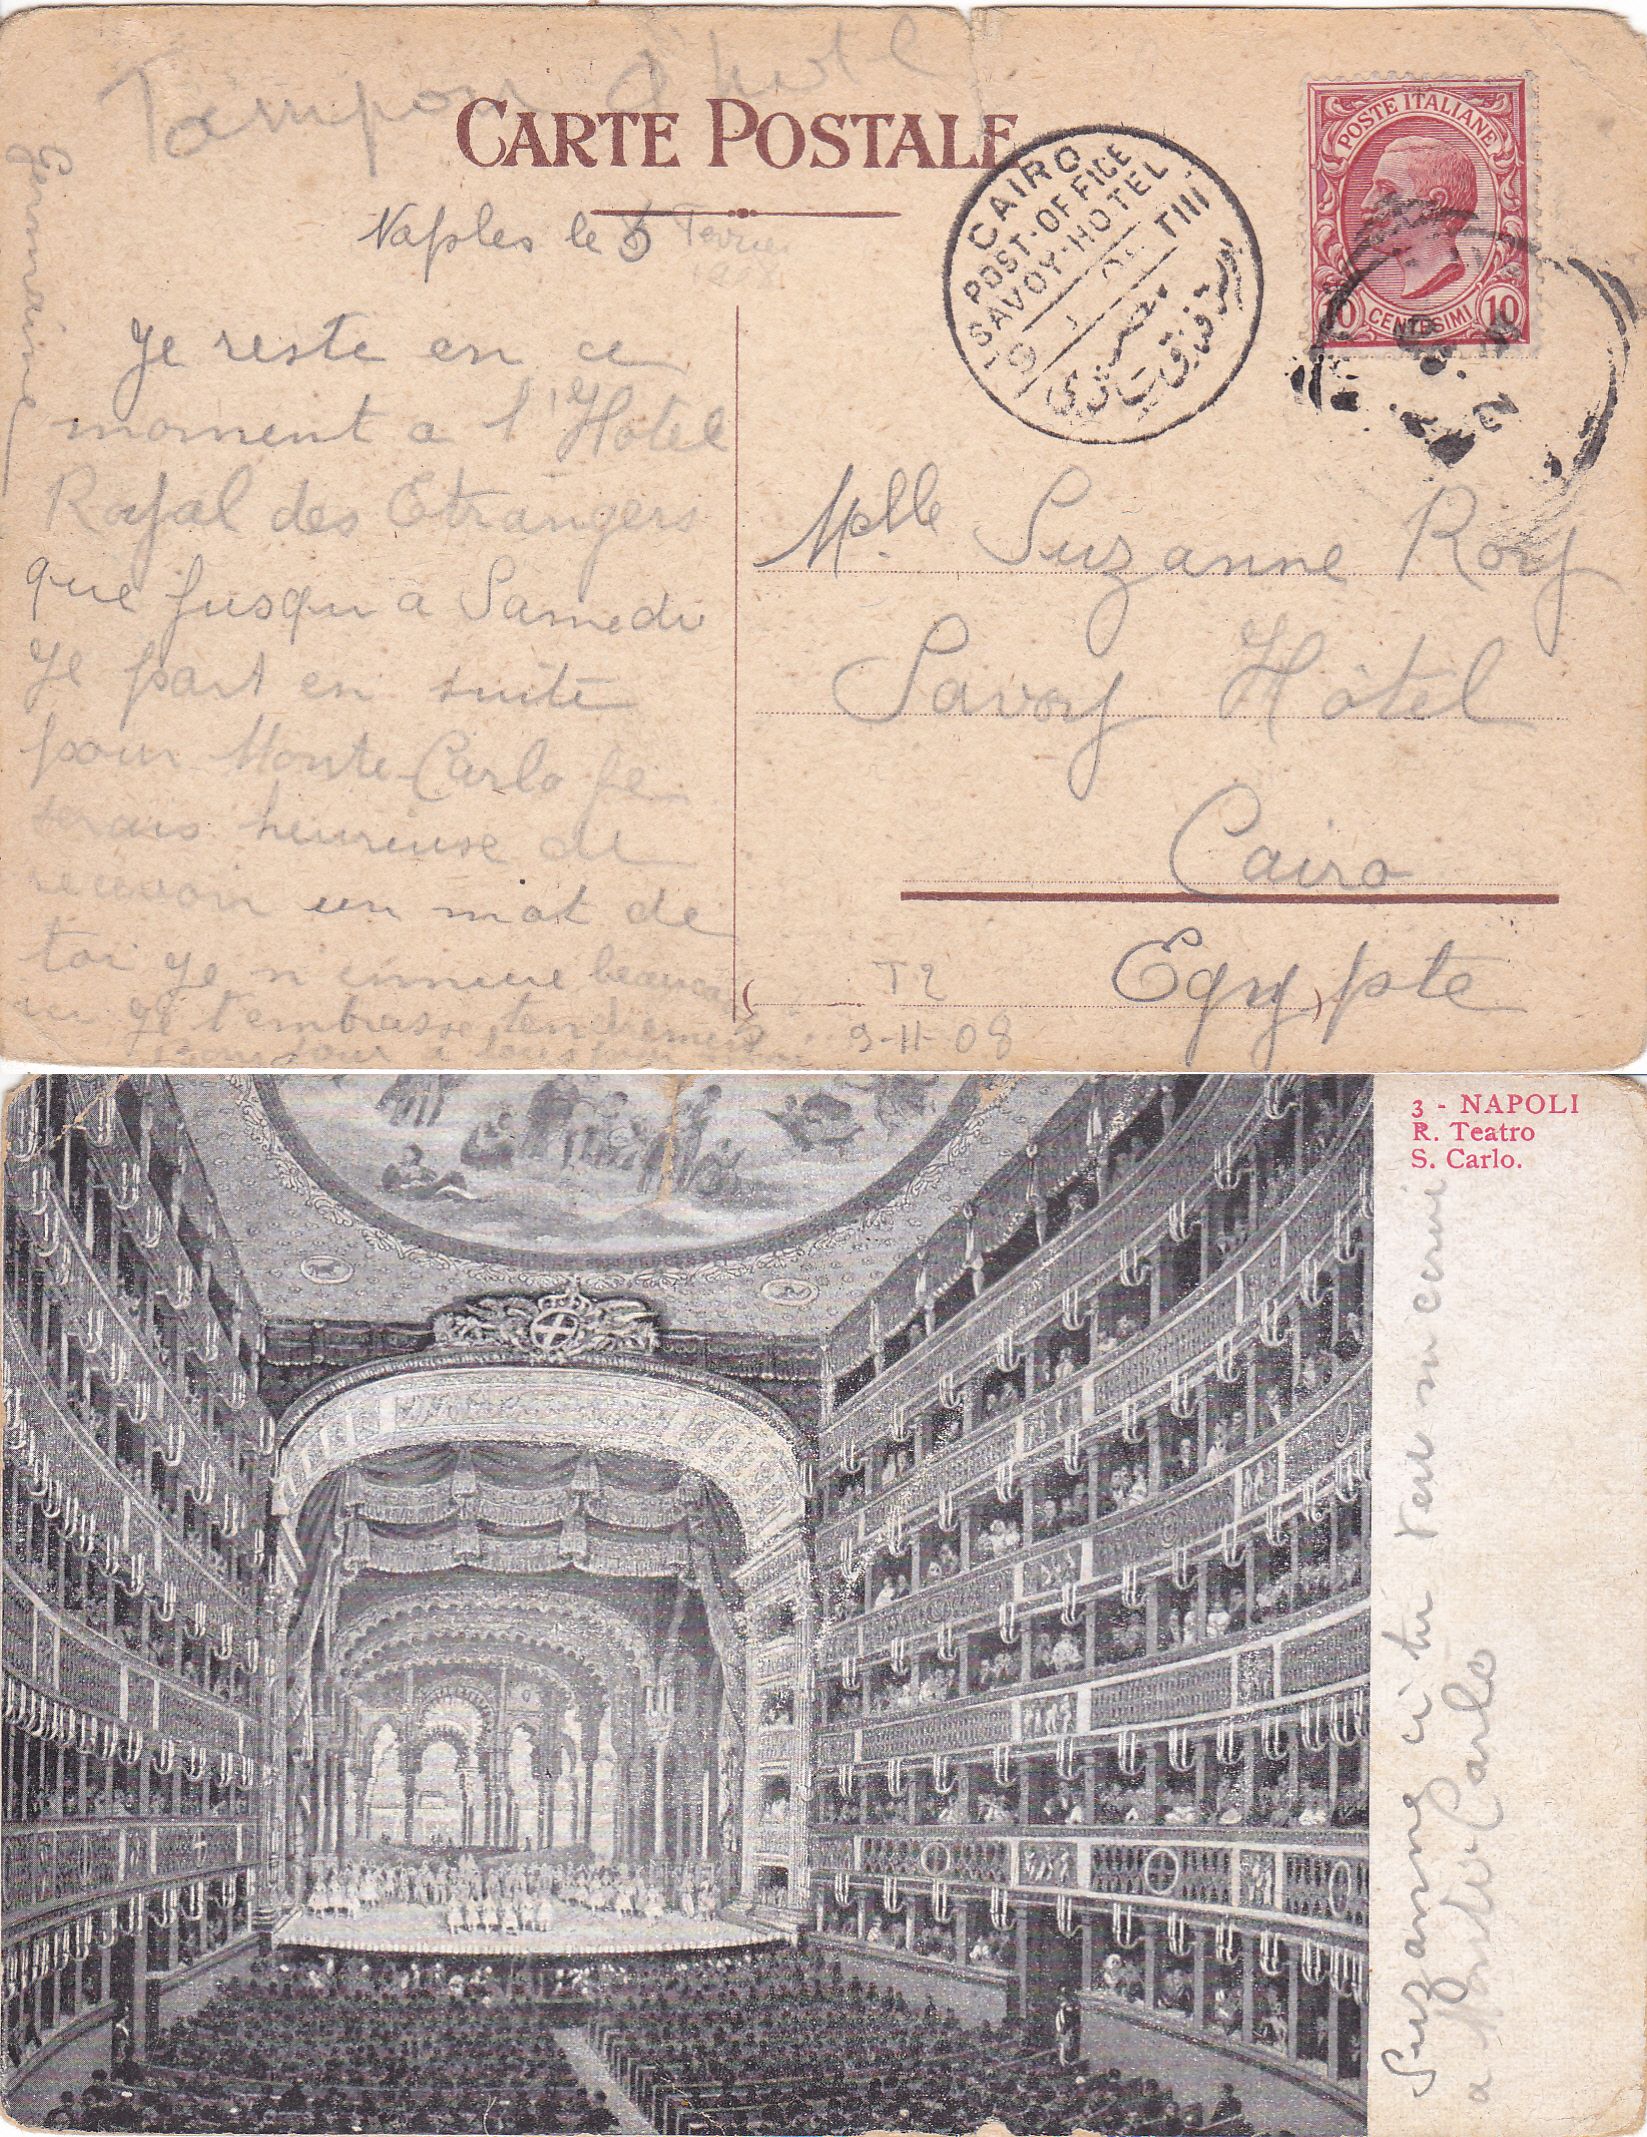 Tampon d'hotel
CARTE POSTALE
Naples le 5 Fevrier
1908
Je reste en ce
moment a l'Hotel
Royal des Etrangers
que jusqu'a Samedi
Je part en suite
pour Monte-Carlo je
serais heureuse de
recevoir un mot de
toi Je m'ennuie beaucoup
Je t'embrasse tendrement
Germaine
CAIRO
POST-OFFICE
SAVOY-HOTEL
POSTE ITALIANE
10 CENTESIMI 10
Mlle Suzanne Roy
Savoy Hôtel
Cairo
Egypte
T2
9-II-08
3 - NAPOLI
R. Teatro
S. Carlo.
Suzanne si tu veux m'ecrire
a Monte Carlo